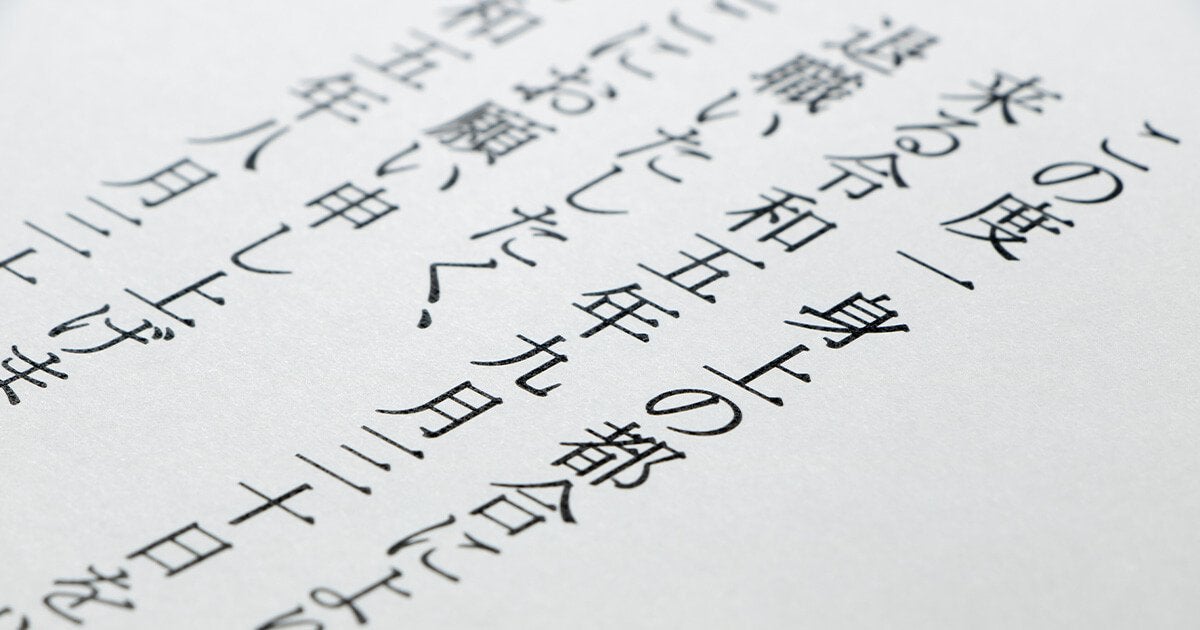 この度一身上の都合によ
来る令和五年九月三十日を
退職いたしたく、
ここにお願い申し上げま
和五年八月三十